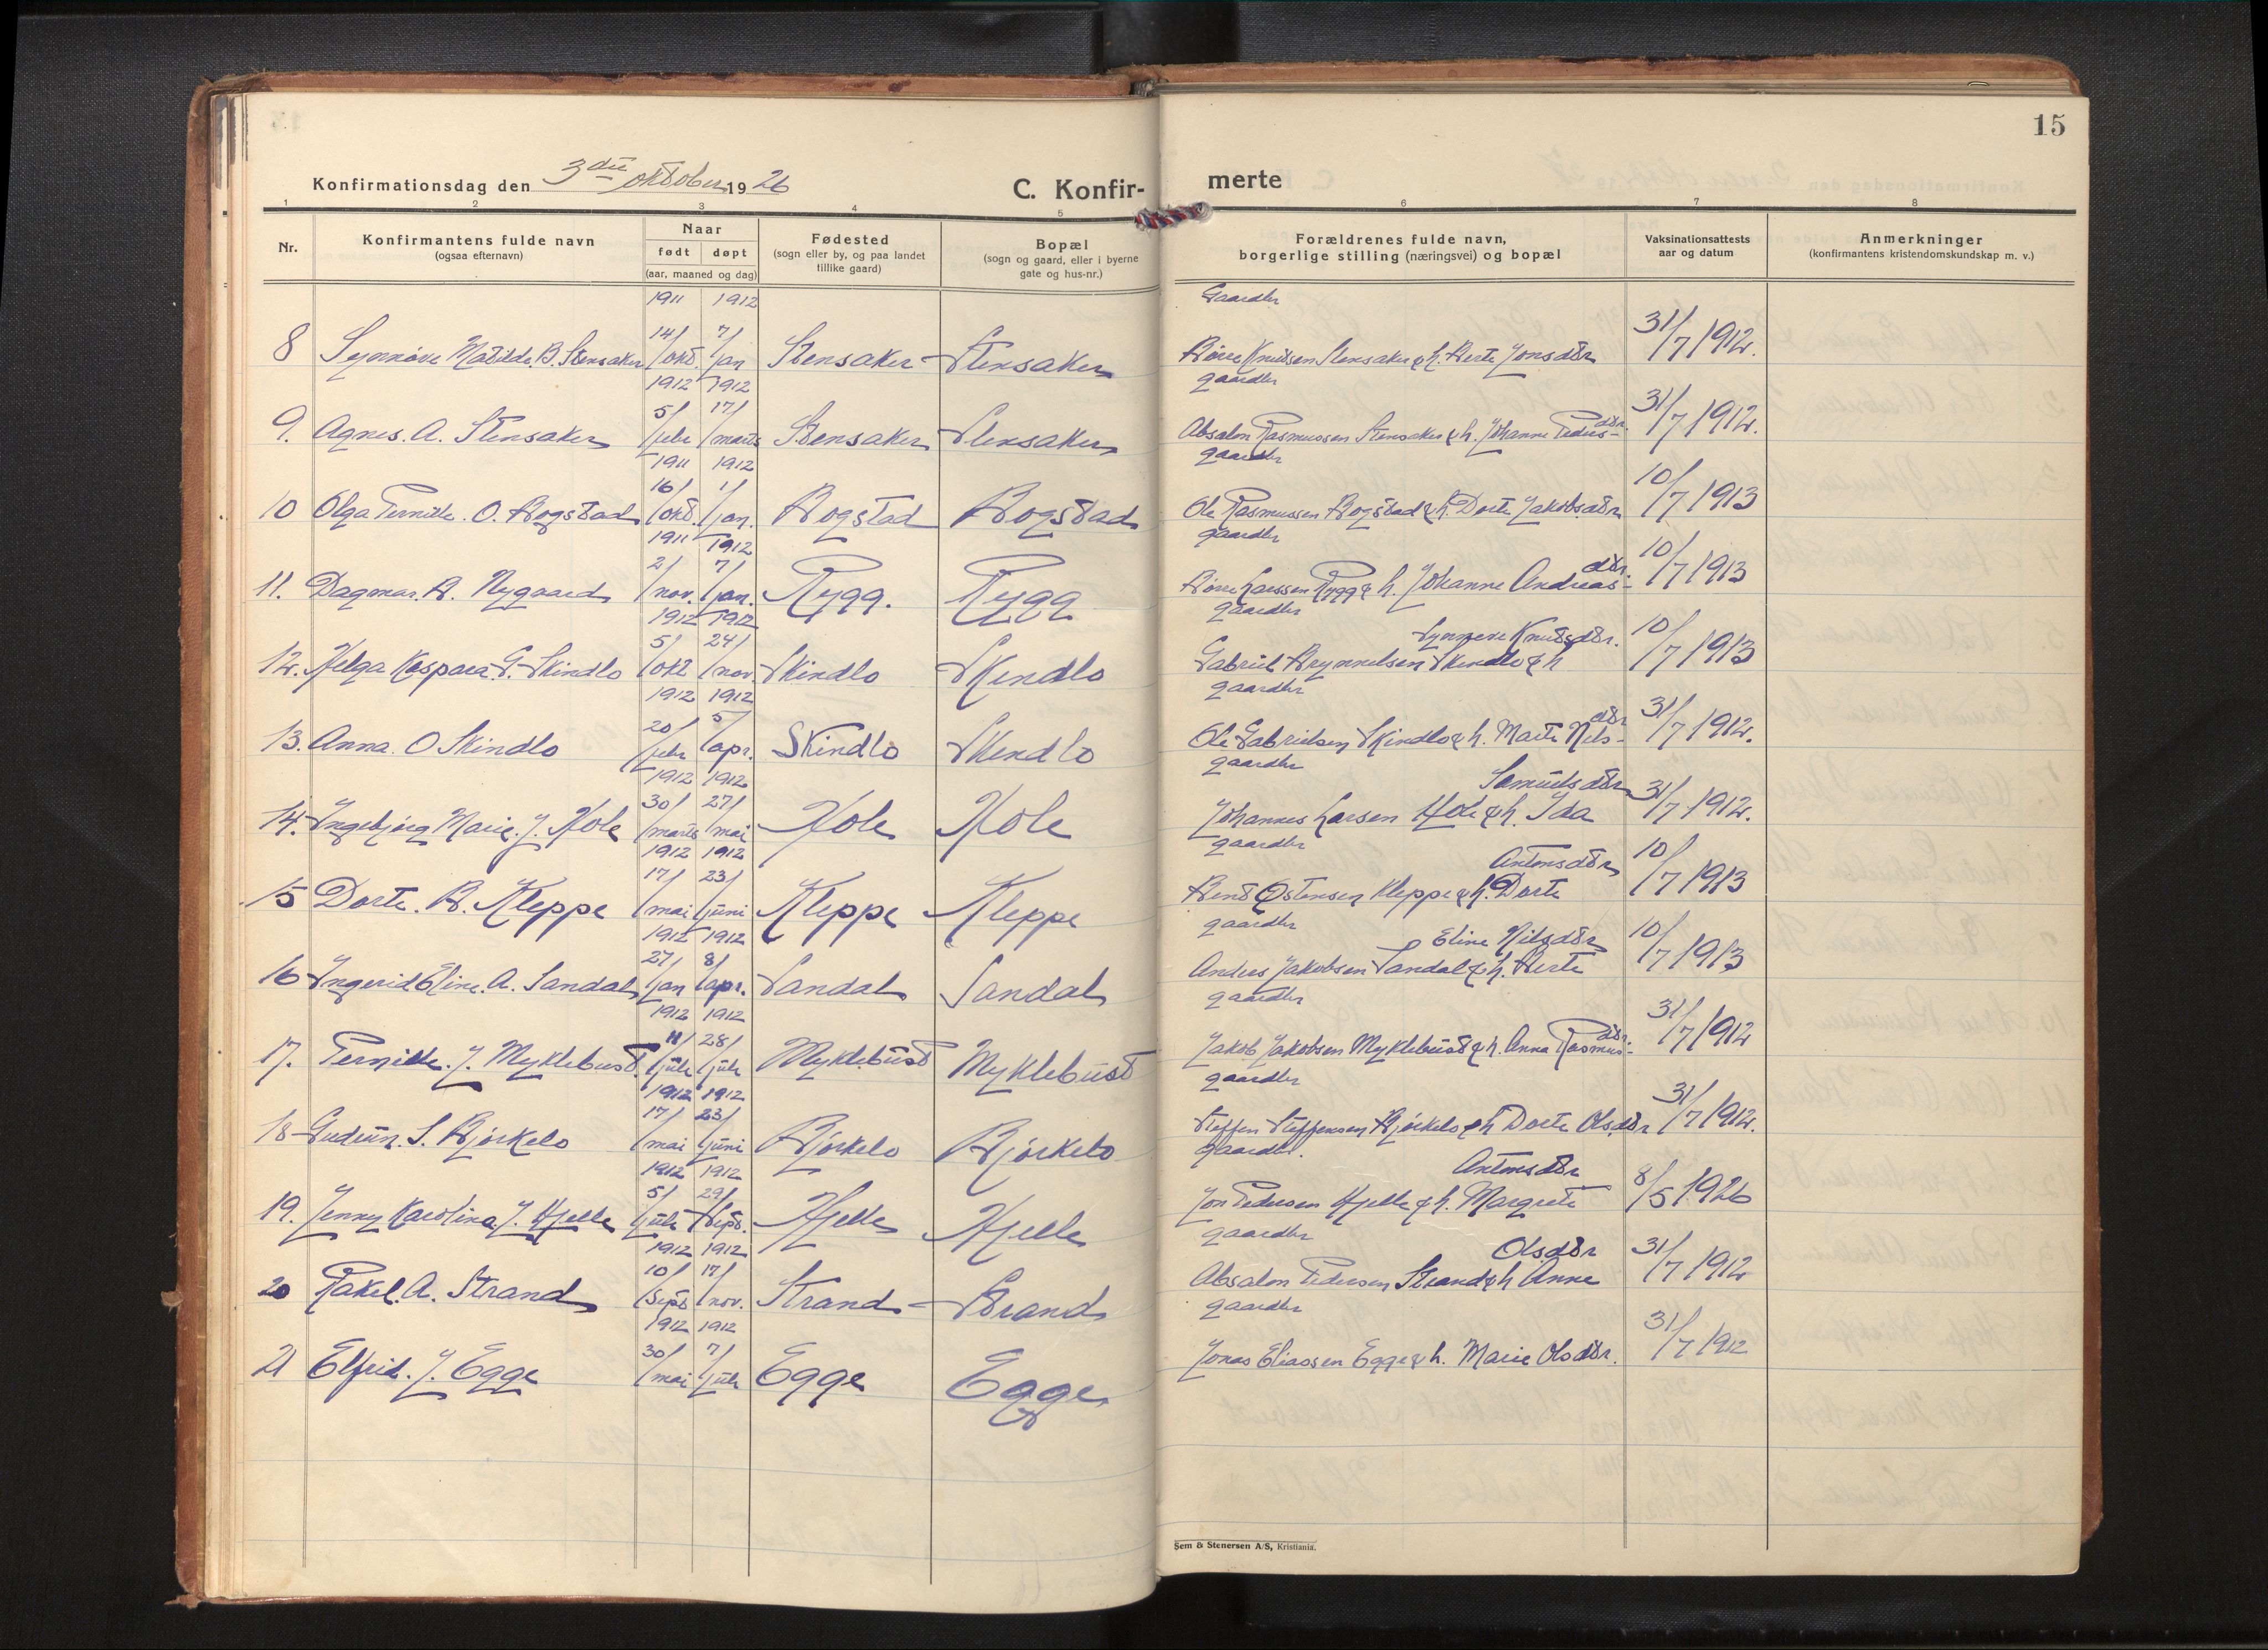 15
Konfirmationsdag den 3die oktober 1926
C. Konfir-
merte
1 2 3 4 5 6 7 8
Nr.
Konfirmantens fulde navn
(ogsaa efternavn)
Naar
født døpt
(aar, maaned og dag)
Fødested
(sogn eller by, og paa landet
tillike gaard)
Bopæl
(sogn og gaard, eller i byerne
gate og hus-nr.)
Forældrenes fulde navn,
borgerlige stilling (næringsvei) og bopæl
Vaksinationsattests
aar og datum
Anmerkninger
(konfirmantens kristendomskundskap m. v.)
1911 1912 Gaardbr
8 Synnøve Matilde. B. Stensaker 14/okt. 7/jan Stensaker - Stensaker Børre Knutsen Stensaker & h. Berte Jonsdtr 31/7 1912.
1912 1912 gaardbr
9. Agnes. A. Stensaker 5/febr 17/marts Stensaker - Stensaker Absalon Rasmussen Stensaker & h. Johanne Peders-dtr. 31/7 1912.
1911 1912 gaardbr
10 Olga Pernille. O. Bogstad 16/okt. 1/jan. Bogstad Bogstad Ole Rasmussen Bogstad & h. Dorte Jakobsdtr 10/7 1913
1911 1912 gaardbr
11. Dagmar. B. Nygaard 2/nov. 7/jan. Rygg. Rygg Børre Larssen Rygg & h. Johanne Andreas-dtr. 10/7 1913
1912 1912 gaardbr
12. Helga Kaspara. G. Skindlo 5/okt 24/nov. Skindlo Skindlo Gabriel Brynnelsen Skindlo & h Synneve Knutsdtr. 10/7 1913
1912 1912 gaardbr
13. Anna. O Skindlo 20/febr 5/apr. Skindlo Skindlo Ole Gabrielsen Skindlo & h. Marte Nils-dtr 31/7 1912.
1912 1912 gaardbr
14. Ingebjørg Marie. J. Hole 30/marts 27/mai Hole Hole Johannes Larsen Hole & h. Ida Samuelsdtr 31/7 1912.
1912 1912 gaardbr
15 Dorte. B. Kleppe 17/mai 23/juni Kleppe Kleppe Bent Østensen Kleppe & h. Dorte Antonsdtr 10/7 1913
1912 1912 gaardbr
16 Ingerid Eline. A. Sandal 27/jan 8/apr. Sandal Sandal Anders Jakobsen Sandal & h. Berte Eline Nilsdtr 10/7 1913
1912 1912 gaardbr
17. Pernille. J. Myklebust. 11/juli 28/juli Myklebust Myklebust Jakob Jakobsen Myklebust & h. Anna Rasmus-dtr. 31/7 1912
1912 1912 gaardbr
18 Gudrun. S. Bjørkelo 17/mai 23/juni Bjørkelo Bjørkelo Steffen Steffensen Bjørkelo & h Dorte Olsdtr 31/7 1912.
1912 1912 gaardbr.
19. Jenny Karolina J. Hjelle 5/juli 29/sept. Hjelle Hjelle Jon Pedersen Hjelle & h. Margrete Antonsdtr 8/5 1926
1912 1912 gaardbr
20 Rakel. A. Strand 10/sept 17/nov. Strand - Strand Absalon Pedersen Strand & h Anne Olsdtr 31/7 1912
1912 1912 gaardbr
21 Elfrid. J. Egge 30/mai 7/juli Egge Egge Jonas Eliassen Egge & h. Marie Olsdtr. 31/7 1912
Sem & Stenersen A/S, Kristiania.